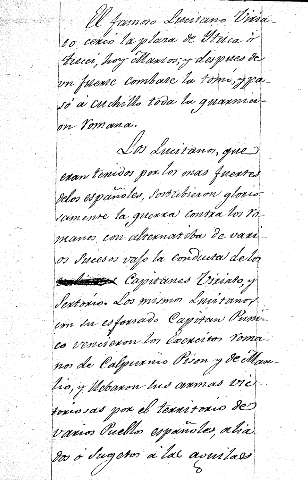 El famoso Lusitano Viria-
to cercó la plaza de Ytuca ó
Tucci, hoy Martos; y despues de
un fuerte combate la tomó, y pa-
só á cuchillo toda la guarnici-
on romana.
Los Lusitanos, que
eran tenidos por los mas fuertes
de los españoles, sostubieron glorio-
samente la guerra contra los ro-
manos con alternatiba de vari-
os sucesos vajo la conducta de los
Capitanes Viriato, y
Sertorio. Los mismos Lusitanos
con su esforzado Capitan Puni-
co vencieron los Exercitos roma-
nos de Calpurnio Pison y de Man-
lio, y llebaron sus armas vic-
toriosas por el territorio de
varios Pueblos españoles, alia-
dos ó sugetos á las aguilas